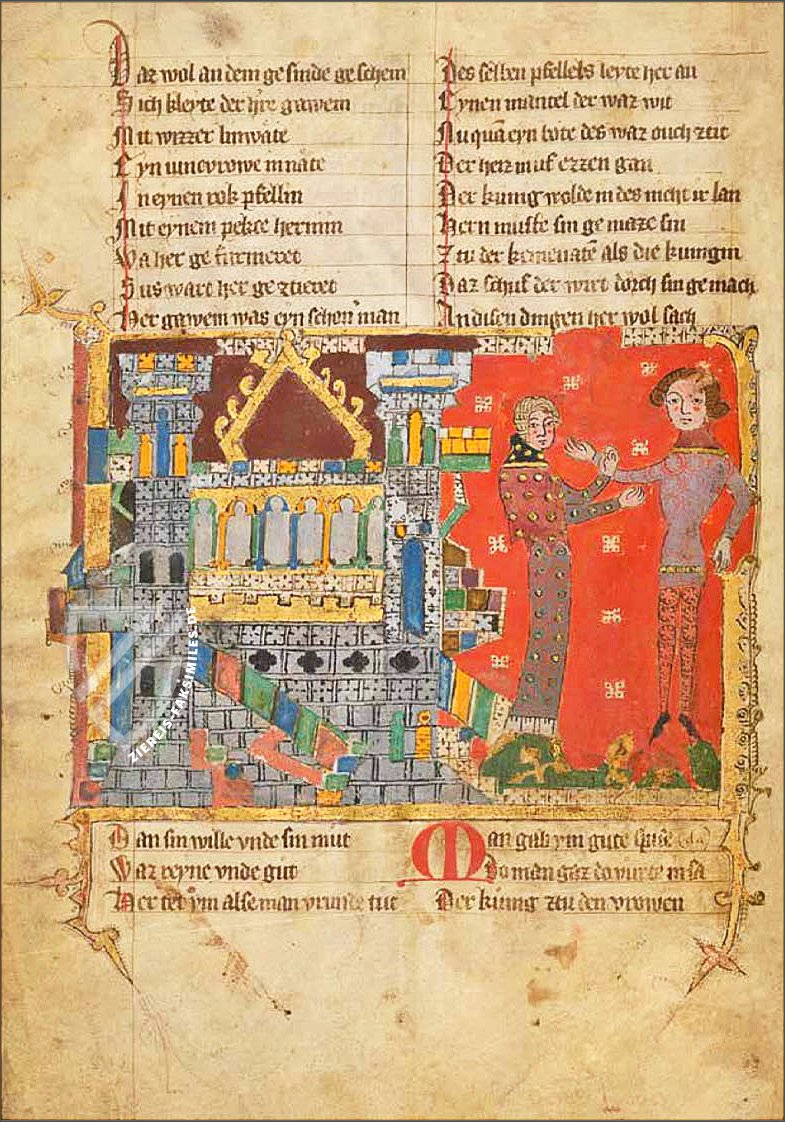 Daz wol an dem ge sinde ge schein
Sich kleyte der h're gawein
Mit wizzer linwate
Eyn iuncvrowe in nate
In eynen rok pfellin
Mit eynem pelze hermin
Wa her ge furrieret
Sus wart her ge ztieret
Her gawein was eyn schon man
Des selben pfellels leyte her an
Eynen mantel der waz wit
Nu quā eyn bote des waz ouch ztit
Der hiez in uf ezzen gan
Der kunig wolde in des nicht ir lan
Hern muste sin ge maze sin
Ztu der kemenatē als die kunigin
Daz schuf der wirt dorch sin ge mach
An disen dingen her wol sach
ZIEREIS-FAKSIMILES.DE
Dan sin wille vnde sin mut
Waz reyne vnde gut
Her tet ym alse man vrunde tut
Man gab ym gute spise
Do man gaz do vurte in sa
Der kunig ztu den vrowen